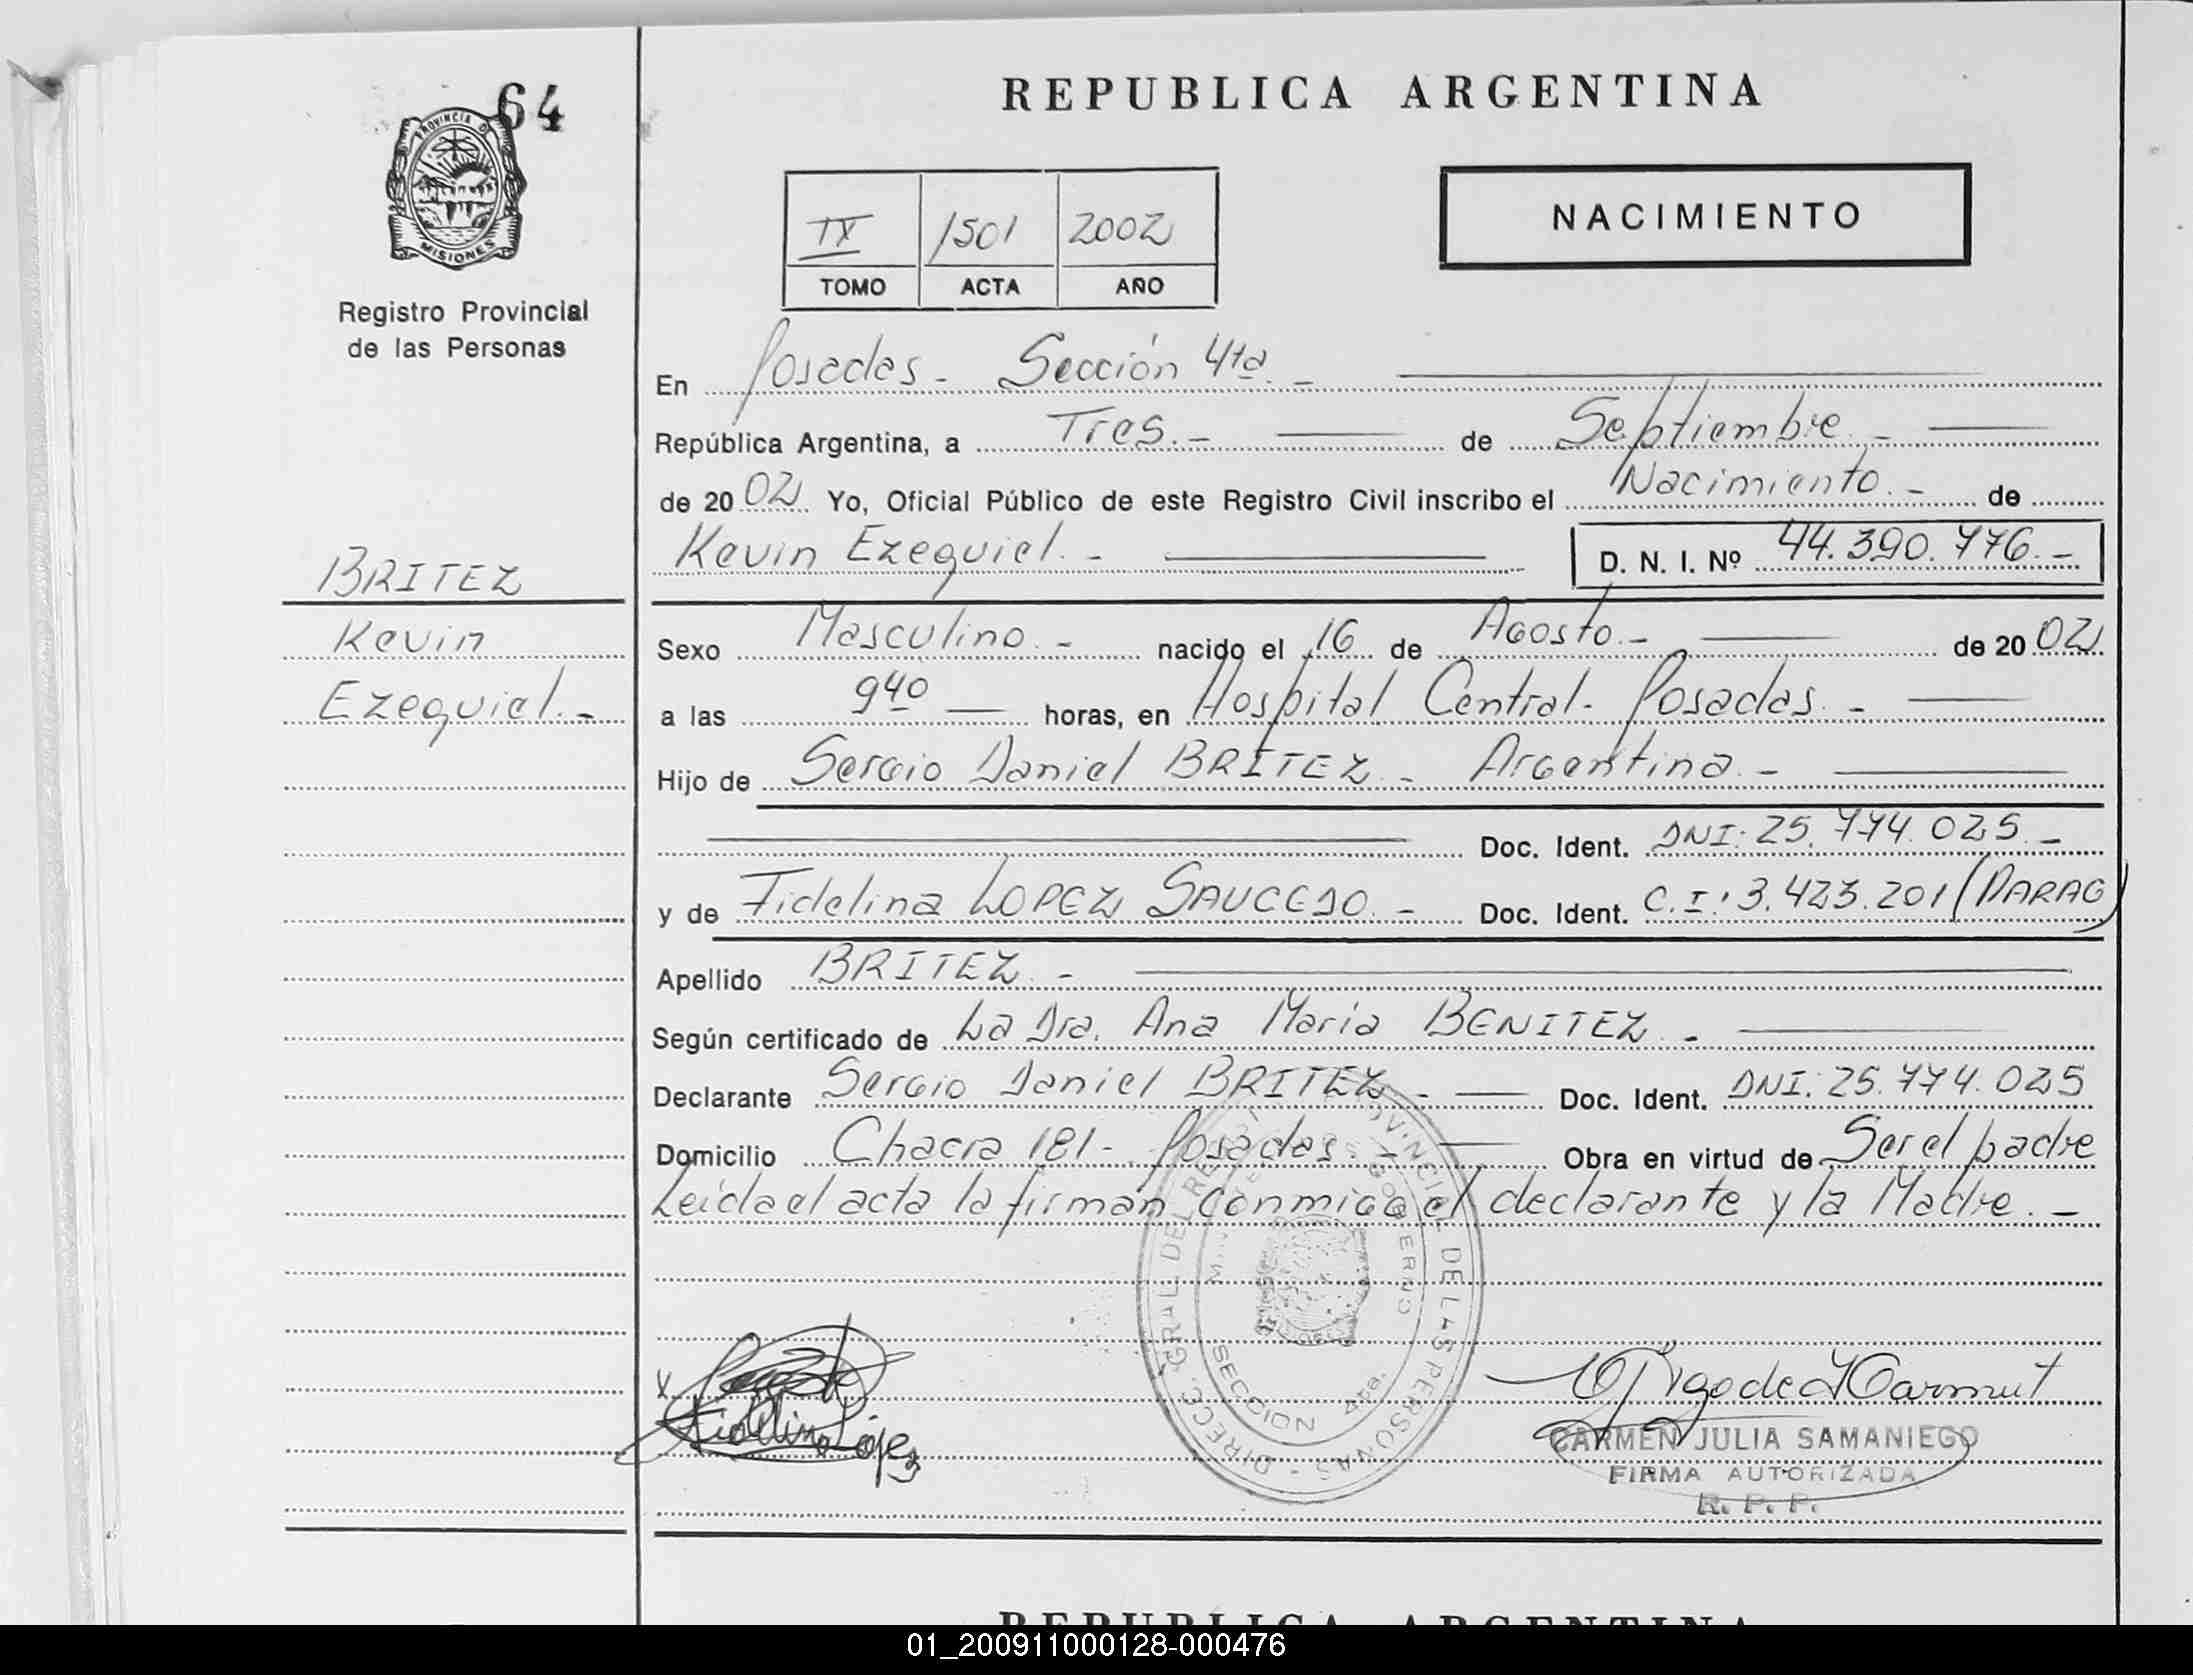 64
PROVINCIA DE
MISIONES
Registro Provincial
de las Personas
REPUBLICA ARGENTINA
IX 1501 2002
TOMO ACTA AÑO
NACIMIENTO
En Posadas - Sección 4ta. -
República Argentina, a Tres. - de Septiembre. -
de 20 02 Yo, Oficial Público de este Registro Civil inscribo el Nacimiento. - de
Kevin Ezequiel. - D. N. I. Nº 44.390.776. -
BRITEZ
Kevin
Ezequiel. -
Sexo Masculino. - nacido el 16 de Agosto. - de 20 02
a las 9 40 horas, en Hospital Central - Posadas. -
Hijo de Sergio Daniel BRITEZ. - Argentina. -
Doc. Ident. DNI: 25.774.025. -
y de Fidelina LOPEZ SAUCEDO. - Doc. Ident. C.I.: 3.423.201 (PARAG)
Apellido BRITEZ. -
Según certificado de La Dra. Ana María BENITEZ. -
Declarante Sergio Daniel BRITEZ. - Doc. Ident. DNI: 25.774.025
Domicilio Chacra 181 - Posadas - Obra en virtud de Ser el padre
Leída el acta la firman conmigo el declarante y la Madre. -
DIRECC. GRAL. DEL REGISTRO PROVINCIAL DE LAS PERSONAS -
GOBIERNO
SECCION 4ta.
Fidelina López
CARMEN JULIA SAMANIEGO
FIRMA AUTORIZADA
R. P. P.
REPUBLICA ARGENTINA
01_200911000128-000476